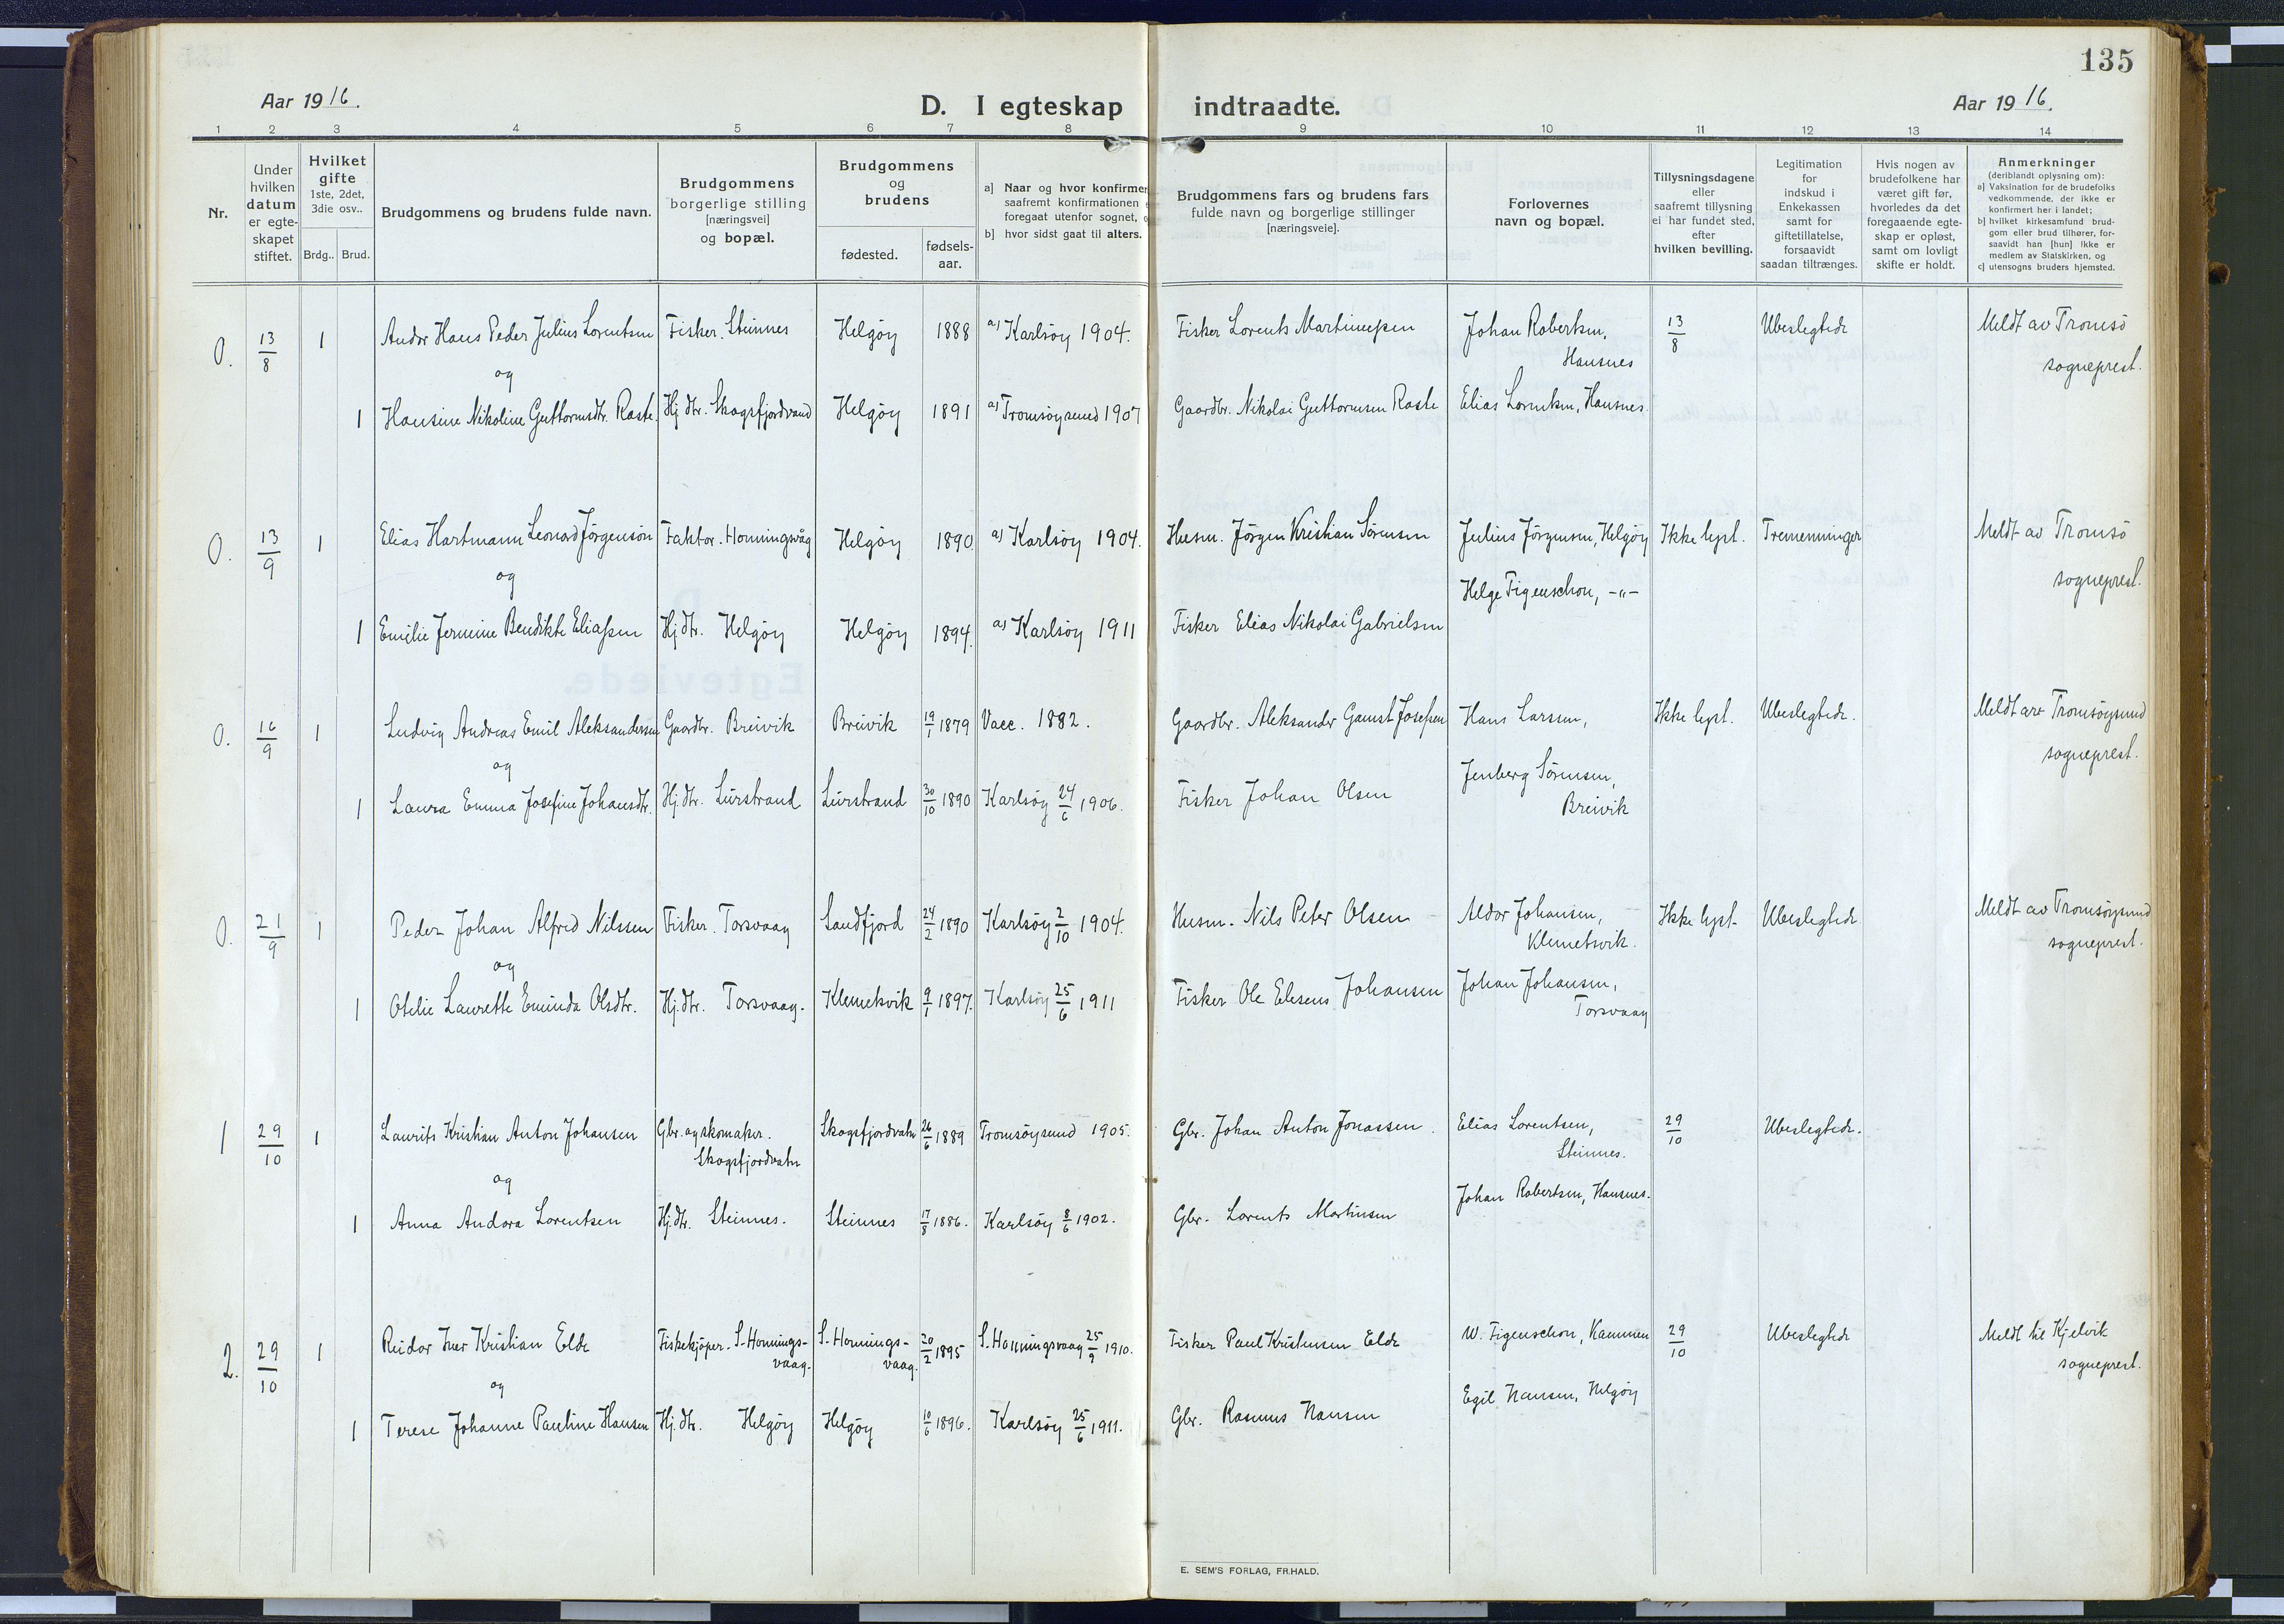 135
Aar 1916.
D. I egteskap indtraadte.
Aar 1916.
1 2 3 4 5 6 7 8 9 10 11 12 13 14
Nr.
Under
hvilken
datum
er egte-
skapet
stiftet.
Hvilket
gifte
1ste, 2det,
3die osv..
Brdg..
Brud.
Brudgommens og brudens fulde navn.
Brudgommens
borgerlige stilling
[næringsvei]
og bopæl.
Brudgommens
og
brudens
fødested.
fødsels-
aar.
a] Naar og hvor konfirmer
saafremt konfirmationen
foregaat utenfor sognet,
b] hvor sidst gaat til alters.
Brudgommens fars og brudens fars
fulde navn og borgerlige stillinger
[næringsveie].
Forlovernes
navn og bopæl.
Tillysningsdagene
eller
saafremt tillysning
ei har fundet sted,
efter
hvilken bevilling.
Legitimation
for
indskud i
Enkekassen
samt for
giftetillatelse,
forsaavidt
saadan tiltrænges.
Hvis nogen av
brudefolkene har
været gift før,
hvorledes da det
foregaaende egte-
skap er opløst,
samt om lovligt
skifte er holdt.
Anmerkninger
(deriblandt oplysning om):
a] Vaksination for de brudefolks
vedkommende, der ikke er
konfirmert her i landet;
b] hvilket kirkesamfund brud-
gom eller brud tilhører, for-
saavidt han [hun] ikke er
medlem av Statskirken, og
c] utensogns bruders hjemsted.
0. 13/8 1 Andor Hans Peder Julius Lorentsen Fisker. Steinnes Helgöy 1888 a) Karlsöy 1904. Fisker Lorents Martinussen Johan Robertsen, 13/8 Ubeslegtede Meldt av Tromsö
Hansnes sogneprest.
og
1 Hansine Nikoline Guttormsdtr. Raste. Hj.dtr. Skogsfjordvand Helgöy 1891 a) Tromsöysund 1907 Gaardbr. Nikolai Guttormsen Raste Elias Lorentsen, Hansnes.
0. 13/9 1 Elias Hartmann Leonard Jörgensen Faktor. Honningsvåg Helgöy 1890 a) Karlsöy 1904. Husm. Jörgen Kristian Sörensen Julius Jörgensen, Helgöy Ikke lyst. Tremenninger Meldt av Tromsö
og Helge Figenschou, -"- sogneprest.
1 Emilie Jermine Bendikte Eliassen Hj.dtr. Helgöy Helgöy 1894. a) Karlsöy 1911 Fisker Elias Nikolai Gabrielsen
0. 16/9 1 Ludvig Andreas Emil Aleksandersen Gaardbr. Breivik Breivik 19/1 1879 Vacc. 1882. Gaardbr. Aleksander Gamst Josefsen Hans Larsen, Ikke lyst. Ubeslegtede. Meldt av Tromsöysund
og Jenberg Sörensen, sogneprest.
1 Laura Emma Josefine Johansdtr. Hj.dtr. Lürstrand Lürstrand 30/10 1890 Karlsöy 24/6 1906. Fisker Johan Olsen Breivik
0. 21/9 1 Peder Johan Alfred Nilssen Fisker. Torsvaag Sandfjord 24/2 1890 Karlsöy 2/10 1904. Husm. Nils Peter Olsen Aldor Johansen, Ikke lyst. Ubeslegtede Meldt av Tromsöysund
Klemetsvik. sogneprest.
og
1 Otelie Laurette Eminda Olsdtr. Hj.dtr. Torsvaag. Klemetsvik 9/1 1897. Karlsöy 25/6 1911 Fisker Ole Elesens Johansen Johan Johansen,
Torsvaag
1 29/10 1 Laurits Kristian Anton Johansen Gbr. og skomaker. Skogsfjordvatn 26/6 1889 Tromsöysund 1905. Gbr. Johan Anton Jonassen. Elias Lorentsen, 29/10 Ubeslegtede.
Skogsfjordvatn Steinnes.
og Johan Robertsen, Hansnes.
1 Anna Andora Lorentsen Hj.dtr. Steinnes. Steinnes 17/8 1886. Karlsöy 8/6 1902. Gbr. Lorents Martinsen
2. 29/10 1 Reidar Iver Kristian Elde Fiskekjöper. S.-Honnings- S.-Honnings- 20/2 1895 S. Honningsvaag 25/9 1910. Fisker Paul Kristensen Elde W. Figenschou, Kammen 29/10 Ubeslegtede Meldt til Kjelvik
vaag. vaag. sogneprest.
og
1 Terese Johanne Pauline Hansen Hj.dtr. Helgöy Helgöy 10/6 1896. Karlsöy 25/6 1911. Gbr. Rasmus Hansen Egil Hansen, Helgöy
E. SEM'S FORLAG, FR.HALD.